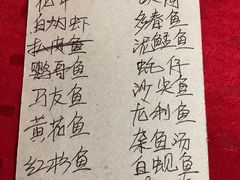 白灼虾
鹦哥鱼
马友鱼
黄花鱼
红杉鱼
多春鱼
泥鯭鱼
蚝仔
沙尖鱼
龙利鱼
杂鱼汤
白蚬鱼